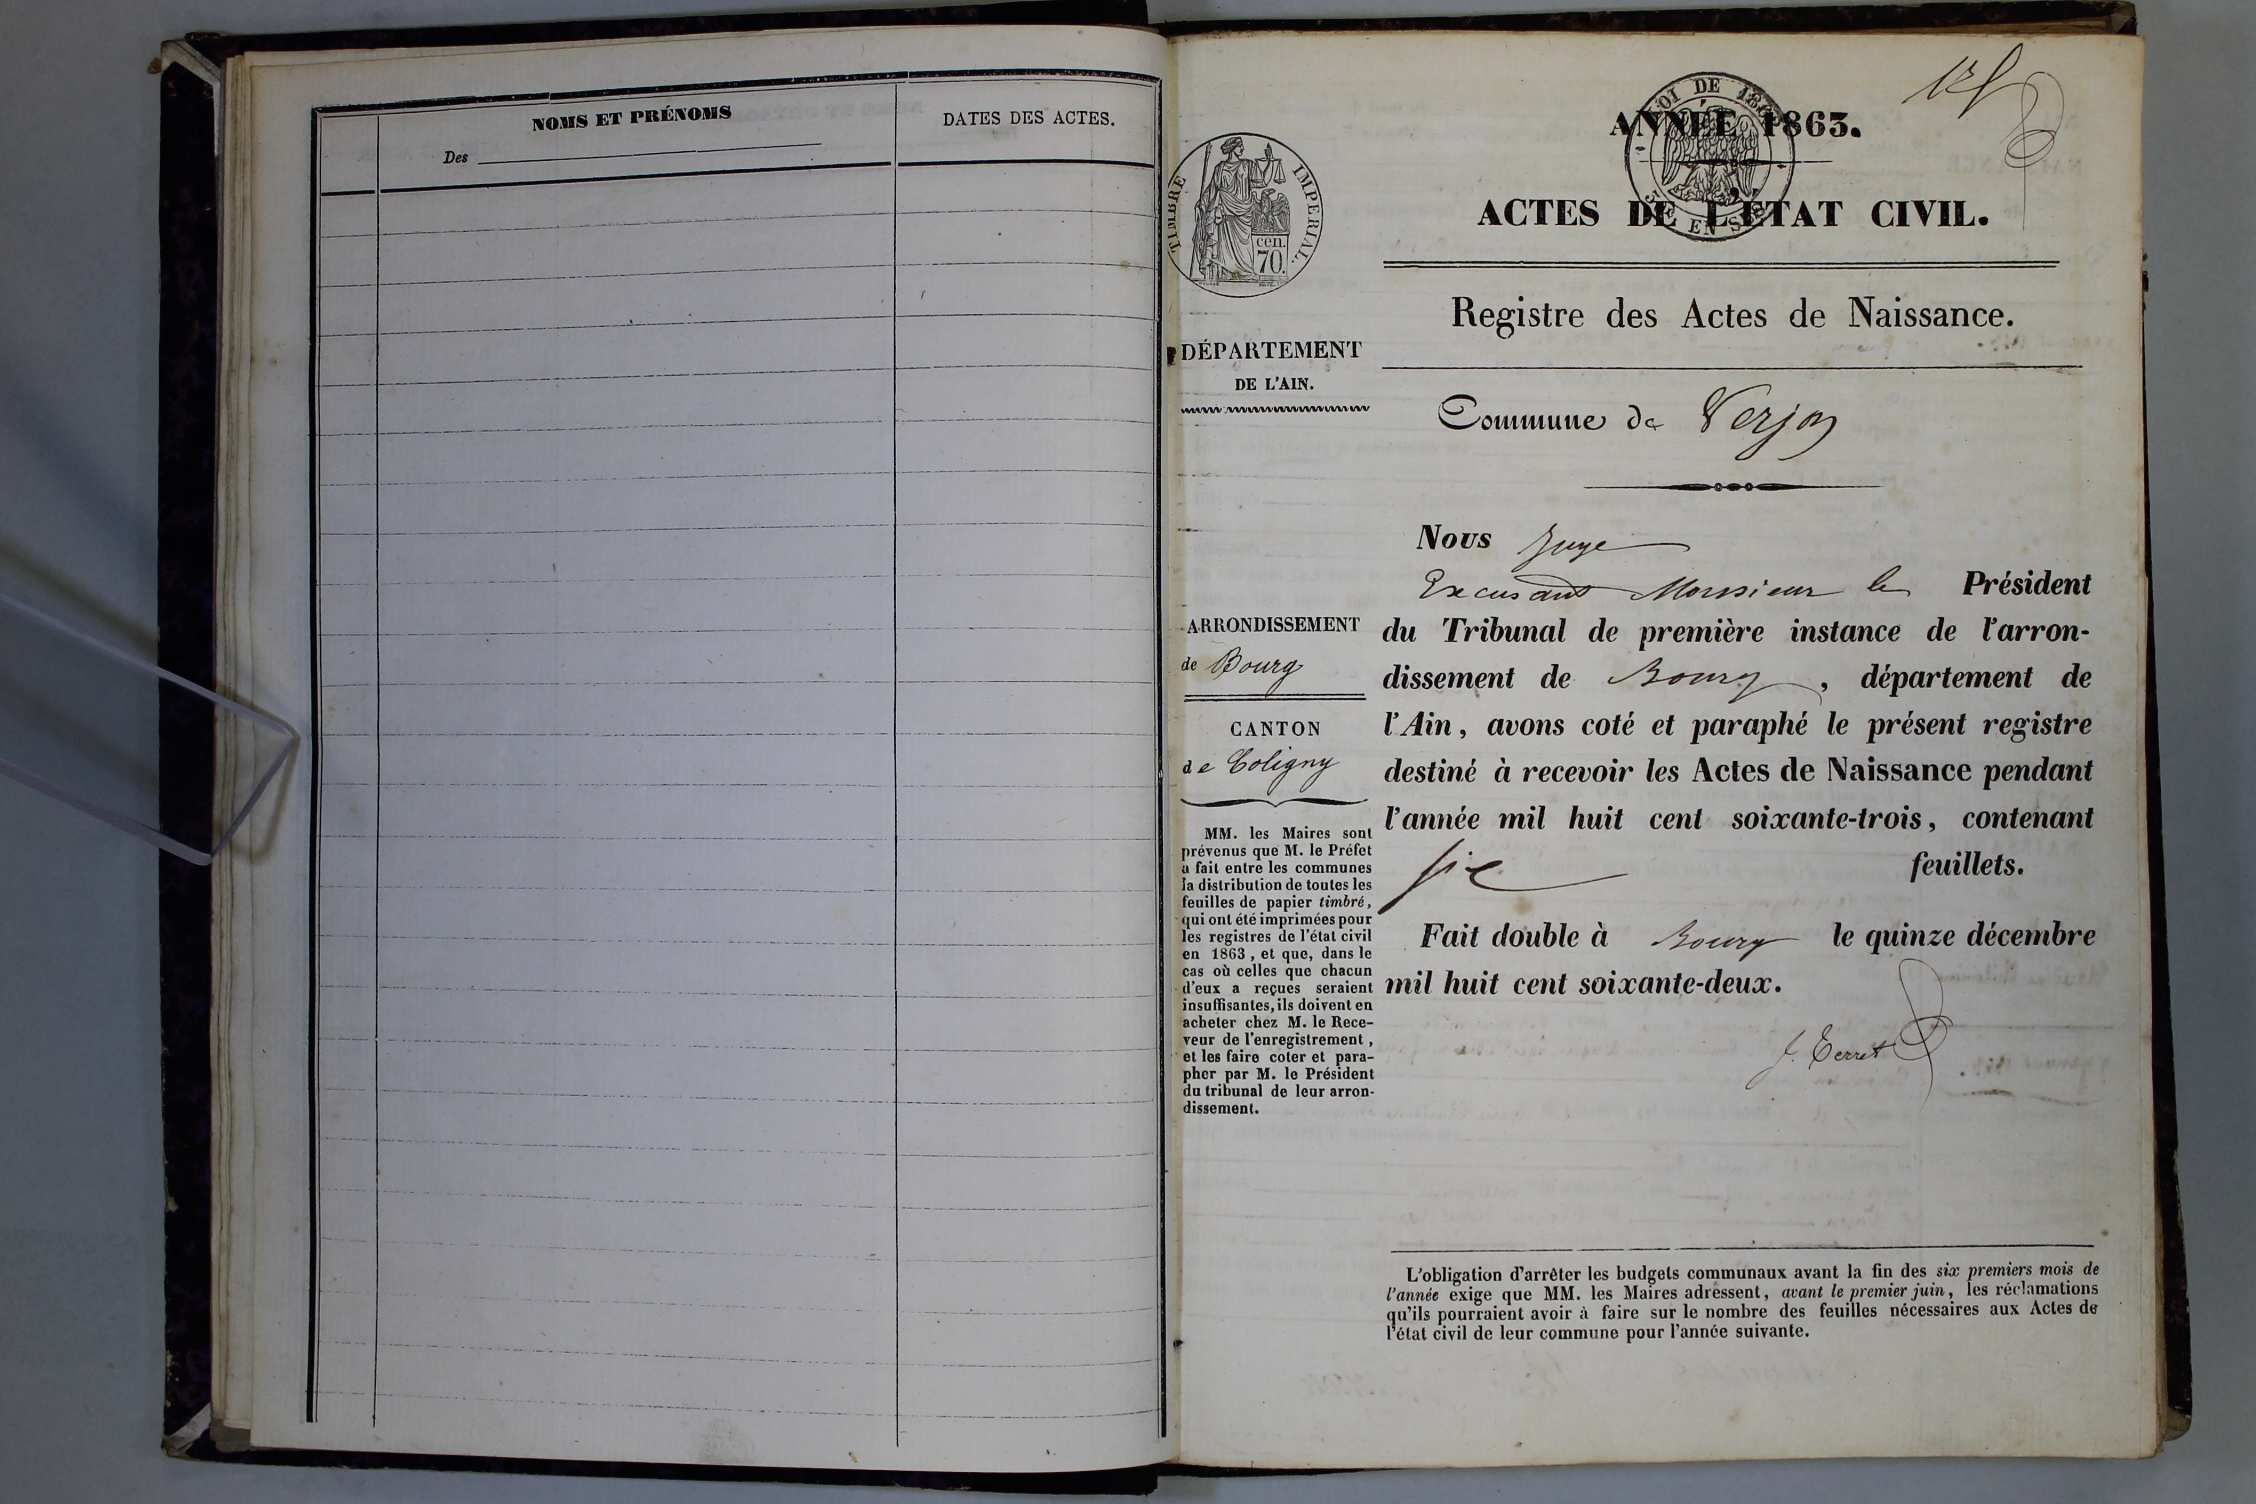 NOMS ET PRÉNOMS
Des
DATES DES ACTES.
TIMBRE IMPERIAL.
cen.
70.
DÉPARTEMENT
DE L'AIN.
ARRONDISSEMENT
de Bourg
CANTON
de Coligny
MM. les Maires sont
prévenus que M. le Préfet
a fait entre les communes
la distribution de toutes les
feuilles de papier timbré,
qui ont été imprimées pour
les registres de l'état civil
en 1863, et que, dans le
cas où celles que chacun
d'eux a reçues seraient
insuffisantes, ils doivent en
acheter chez M. le Rece-
veur de l'enregistrement,
et les faire coter et para-
pher par M. le Président
du tribunal de leur arron-
dissement.
LOI DE
EN SUS
ANNÉE 1863.
ACTES DE L'ÉTAT CIVIL.
Registre des Actes de Naissance.
Commune de Verjon
Nous Juge
Excusant Monsieur le Président
du Tribunal de première instance de l'arron-
dissement de Bourg, département de
l'Ain, avons coté et paraphé le présent registre
destiné à recevoir les Actes de Naissance pendant
l'année mil huit cent soixante-trois, contenant
six feuillets.
Fait double à Bourg le quinze décembre
mil huit cent soixante-deux.
J. Terret
L'obligation d'arrêter les budgets communaux avant la fin des six premiers mois de
l'année exige que MM. les Maires adressent, avant le premier juin, les réclamations
qu'ils pourraient avoir à faire sur le nombre des feuilles nécessaires aux Actes de
l'état civil de leur commune pour l'année suivante.